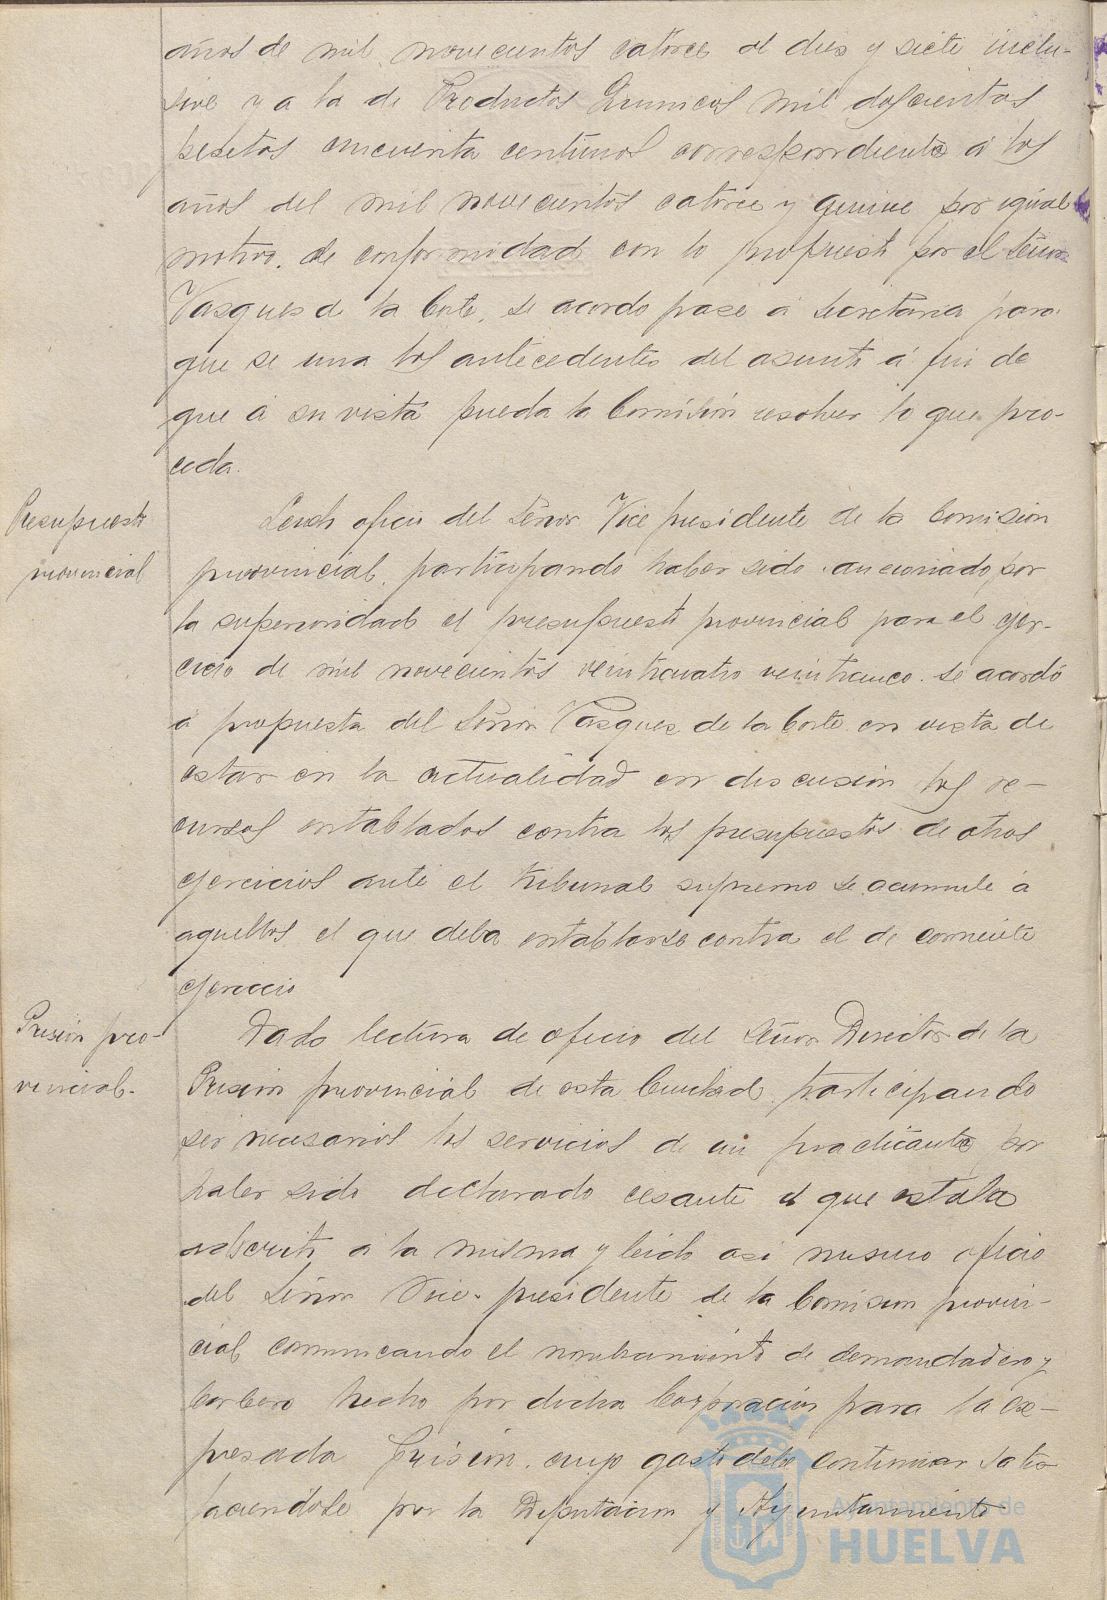 años de mil novecientos catorce al dies y siete inclu-
sive y a la de Productos Quimicos mil doscientas
pesetas cincuenta centimos correspondiente á los
años del mil novecientos catorce y quince por igual
motivo. de conformidad con lo propuesto por el Señor
Vasques de la Corte, se acordo pase á Secretaria para
que se una los antecedentes del asunto á fin de
que á su vista pueda la Comisión resolver lo que pro-
ceda.
Presupuesto
provincial
Leido oficio del Señor Vice presidente de la Comision
provincial, participando haber sido sancionado por
la superioridad el presupuesto provincial para el ejer-
cicio de mil novecientos veinticuatro veinticinco. se acordó
a propuesta del Señor Vasques de la Corte en vista de
estar en la actualidad en discusion los re-
cursos entablados contra los presupuestos de otros
ejercicios ante el tribunal supremo se acumule á
aquellos el que deba entablarse contra el de corriente
ejercicio
Prision pro-
vincial.
Dado lectura de oficio del Señor Director de la
Prision provincial de esta Ciudad participando
ser necesarios los servicios de un practicante, por
haber sido declarado cesante el que estaba
adscrito á la misma y leido asi mismo oficio
del Señor Vice-presidente de la Comision provin-
cial comunicando el nombramiento de demandadero y
barbero hecho por dicha Corporación para la ex-
presada Prisión. cuyo gasto debe continuar satis
faciendose por la Diputacion y Ayuntamiento
Ayuntamiento de
HUELVA